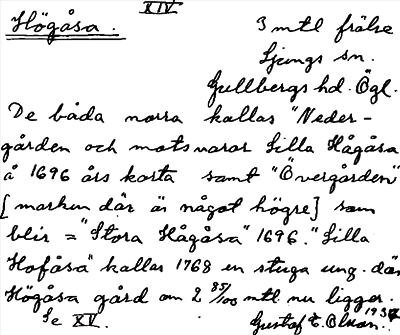 XIV
Högåsa.
3 mtl frälse
Ljungs sn.
Gullbergs hd. Ögl.
De båda norra kallas "Neder-
gården och motsvarar Lilla Hågåsa
å 1696 års karta samt "Övergården"
[marken där är något högre] som
blir = "Stora Hågåsa" 1696. "Lilla
Hofåsa" kallar 1768 en stuga ung. där
Högåsa gård om 2 85/100 mtl nu ligger.
Se XV.
Gustaf E. Olsson.